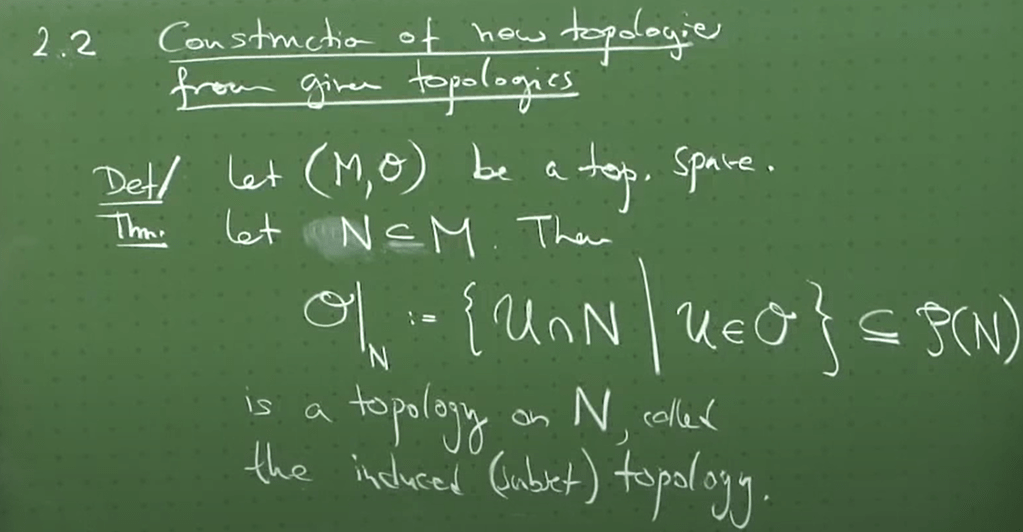 2.2 Construction of new topologies
from given topologies
Def/ Let (M, O) be a top. space.
Thm. Let N ⊆ M. Then
O|_N := { U ∩ N | U ∈ O } ⊆ P(N)
is a topology on N, called
the induced (subset) topology.